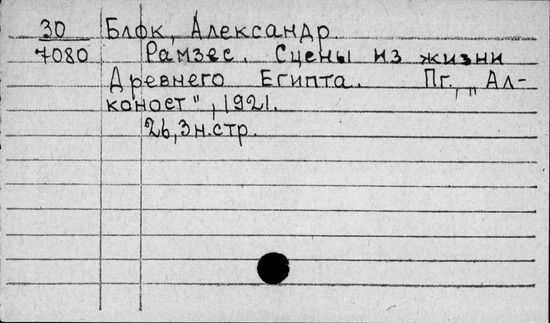 30 Блок, Александр.
7080 Рамзес. Сцены из жизни
Древнего Египта. Пг., „Ал-
коност", 1921.
26, 3 н. стр.